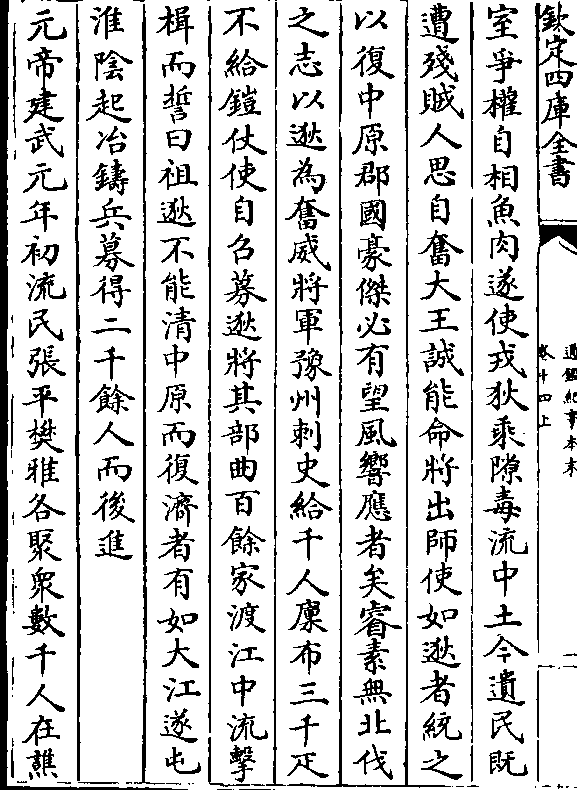 欽定四庫全書
通鑑紀事本末
卷十四上
二
室爭權自相魚肉遂使戎狄乘隙毒流中土今遺民既
遭殘賊人思自奮大王誠能命將出師使如逖者統之
以復中原郡國豪傑必有望風響應者矣睿素無北伐
之志以逖為奮威將軍豫州刺史給千人廩布三千疋
不給鎧仗使自召募逖將其部曲百餘家渡江中流擊
楫而誓曰祖逖不能清中原而復濟者有如大江遂屯
淮陰起冶鑄兵募得二千餘人而後進
元帝建武元年初流民張平樊雅各聚眾數千人在譙